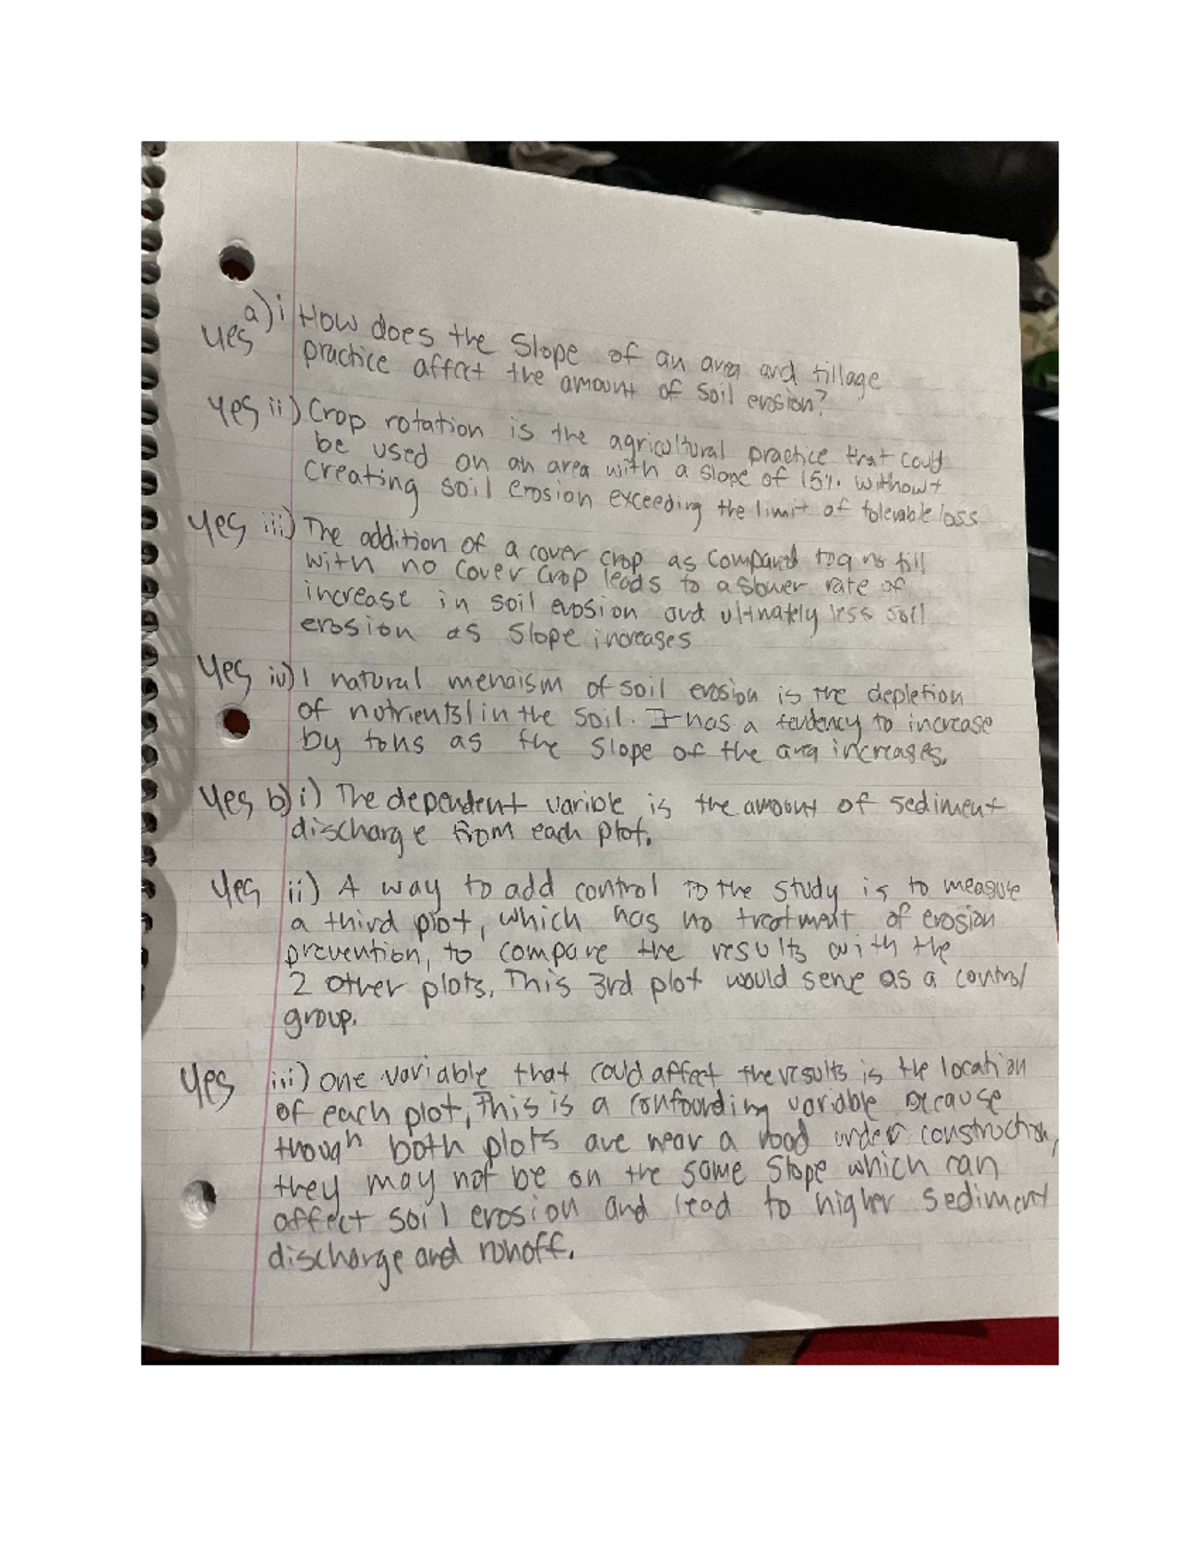 a) i How does the Slope of an area and tillage
yes practice affect the amount of soil erosion?
yes ii) Crop rotation is the agricultural practice that could
be used on an area with a slope of 15% without
creating soil erosion exceeding the limit of tolerable loss
yes iii) The addition of a cover crop as compared to a no till
with no cover crop leads to a slower rate of
increase in soil erosion and ultimately less soil
erosion as slope increases
yes iv) 1 natural menaism of soil erosion is the depletion
of nutrients in the soil. It has a tendency to increase
by tons as the slope of the area increases.
yes b) i) The dependent varible is the amount of sediment
discharge from each plot.
yes ii) A way to add control to the study is to measure
a third plot, which has no treatment of erosion
prevention, to compare the results with the
2 other plots. This 3rd plot would serve as a control
group.
yes iii) one variable that could affect the results is the location
of each plot, This is a confounding variable because
though both plots are near a road under construction,
they may not be on the same slope which can
affect soil erosion and lead to higher sediment
discharge and runoff.